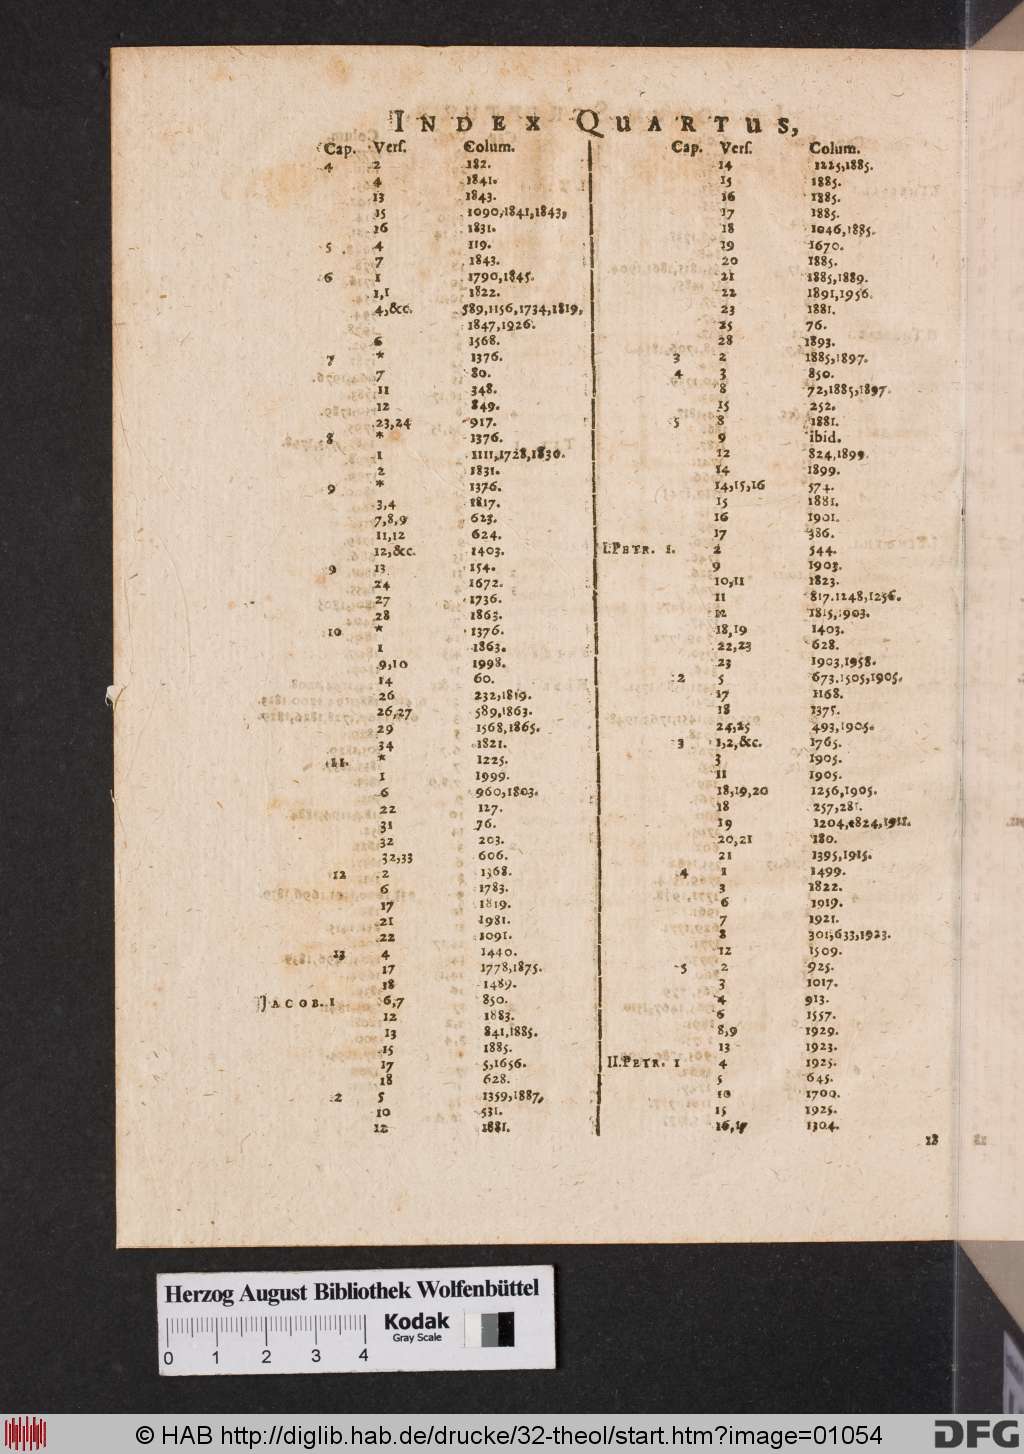 INDEX QUARTUS,
Cap. Vers. Colum.
4 2 182.
4 1841.
13 1843.
15 1090,1841,1843,
16 1831.
5 4 119.
7 1843.
6 1 1790,1845.
1,1 1822.
4,&c. 589,1156,1734,1819,
1847,1926.
6 1568.
7 * 1376.
7 80.
11 348.
12 849.
23,24 917.
8 * 1376.
1 1111,1728,1830.
2 1831.
9 * 1376.
3,4 1817.
7,8,9 623.
11,12 624.
12,&c. 1403.
9 13 154.
24 1672.
27 1736.
28 1863.
10 * 1376.
1 1863.
9,10 1998.
14 60.
26 232,1819.
26,27 589,1863.
29 1568,1865.
34 1821.
11. * 1225.
1 1999.
6 960,1803.
22 127.
31 76.
32 203.
32,33 606.
12 2 1368.
6 1783.
17 1819.
21 1981.
22 1091.
13 4 1440.
17 1778,1875.
18 1489.
JACOB. I 6,7 850.
12 1883.
13 841,1885.
15 1885.
17 5,1656.
18 628.
2 5 1359,1887,
10 531.
12 1881.
Cap. Vers. Colum.
14 1225,1885.
15 1885.
16 1885.
17 1885.
18 1046,1885.
19 1670.
20 1885.
21 1885,1889.
22 1891,1956.
23 1881.
25 76.
28 1893.
3 2 1885,1897.
4 3 850.
8 72,1885,1897.
15 252.
5 8 1881.
9 ibid.
12 824,1899.
14 1899.
14,15,16 574.
15 1881.
16 1901.
17 386.
I.PETR. I. 2 544.
9 1903.
10,11 1823.
11 817.1248,1256.
12 1815,1903.
18,19 1403.
22,23 628.
23 1903,1958.
2 5 673.1505,1905.
17 1168.
18 1375.
24,25 493,1905.
3 1,2,&c. 1765.
3 1905.
11 1905.
18,19,20 1256,1905.
18 257,281.
19 1204,1824,1911.
20,21 180.
21 1395,1915.
4 1 1499.
3 1822.
6 1919.
7 1921.
8 301,633,1923.
12 1509.
5 2 925.
3 1017.
4 913.
6 1557.
8,9 1929.
13 1923.
II.PETR. I 4 1925.
5 645.
10 1700.
15 1925.
16,17 1304.
18
Herzog August Bibliothek Wolfenbüttel
Kodak
Gray Scale
0 1 2 3 4
© HAB http://diglib.hab.de/drucke/32-theol/start.htm?image=01054
DFG